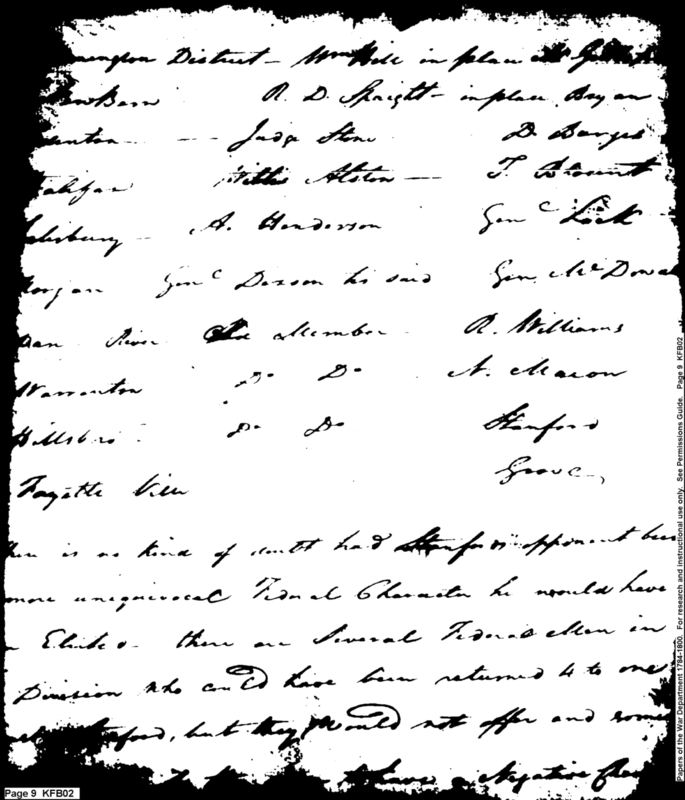 District - Wm Hill in place
New Bern R. D. Spaight - in place Bryan
Judge Stone D Burges
Halifax Willis Alston - T. Blount
Salisbury - A. Henderson Genl Lock
Morgan Genl Dixson his said Gen. McDowal
Dan River Old Member R. Williams
Warrenton Do Do N. Macon
Hillsbro Do Do Stanford
Fayette Ville Grove
there is no kind of doubt had Stanfords opponent been
more unequivocal Federal Character he would have
Elected - there are Several Federal Men in
Division who could have been returned 4 to one
but they would not offer and some
to have a Negative
Page 9 KFB02
Papers of the War Department 1784-1800. For research and instructional use only. See Permissions Guide. Page 9 KFB02